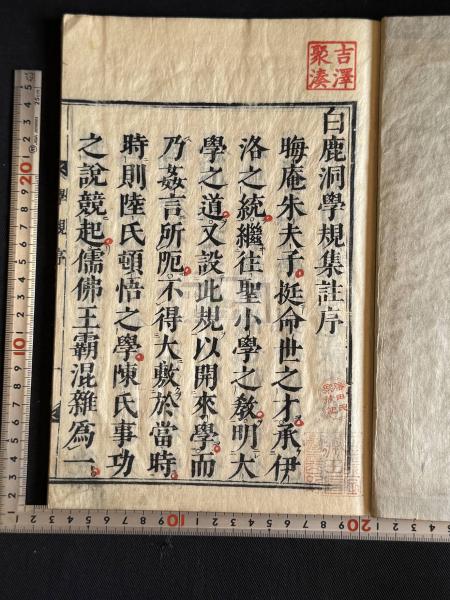 吉澤
聚湊
白鹿洞學規集註序
晦庵朱夫子挺命世之才承伊
洛之統繼往聖小學之教明大
學之道又設此規以開來學而
乃姦言所阨不得大敷於當時
時則陸氏頓悟之學陳氏事功
之說競起儒佛王霸混雜爲一
學規序